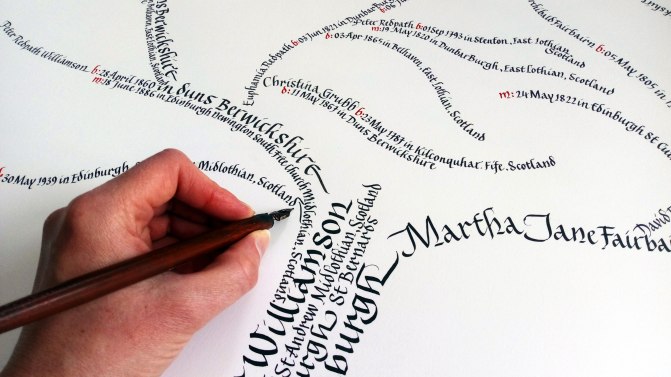 Berwickshire
East Lothian, Scotland
Peter Redpath Williamson b: 28 April 1860 in Duns Berwickshire
m: 18 June 1886 in Edinburgh Newington South Free Church Midlothian, Scotland
30 May 1939 in Edinburgh, Midlothian, Scotland
Euphamia Redpath b: 03 Jun 1821 in Dunbar
d: 03 Apr 1865 in Belhaven, East Lothian, Scotland
Peter Redpath b: 01 Sep 1793 in Stenton, East Lothian
Scotland
m: 19 May 1820 in Dunbar Burgh, East Lothian, Scotland
Christina Grubb b: 23 May 1787 in Kilconquhar, Fife, Scotland
d: 11 May 1867 in Duns Berwickshire
Fairbairn b: 05 May 1805 in
m: 24 May 1822 in Edinburgh St
Williamson
St Andrew Midlothian Scotland
burgh St Bernards
burgh
Martha Jane Fairbai
David